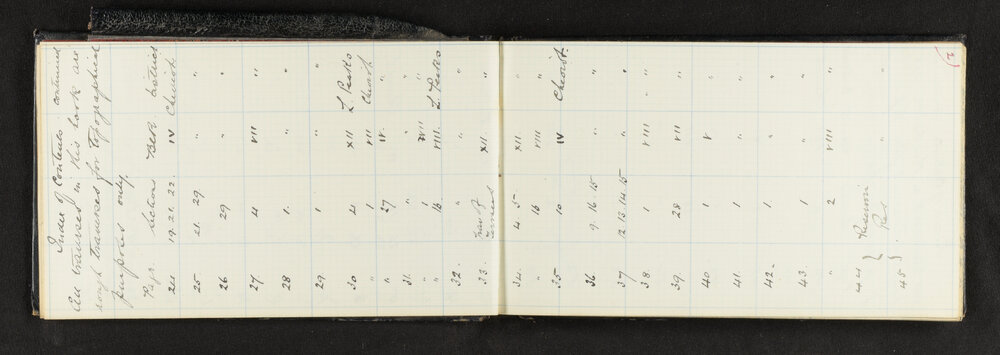 2
Index of Contents continued
All traverses in this book are
rough traverses for topographical
purposes only.
Page. Section Block District
24 19. 21. 22. IV Cheviot
25 21. 29 " "
26 29 " "
27 4 VIII "
28 1. " "
29. 1 " "
30 4 XII L. Peaks
" 1 VII Cheviot
" 27 IV. "
31. " " "
" 1 VII "
" 16 VIII. L. Peaks
32. " " "
33. Trav of XII. "
34. 4 5 XII "
" 16 VIII "
35 10 IV Cheviot.
36 9. 16. 15 " "
37 12 13 14. 15 " "
38. 1 VIII "
39. 28 VII "
40 1 V "
41. 1 " "
42. 1 " "
43 1 " "
" 2 VIII "
44 } Reservoir
45 } Res